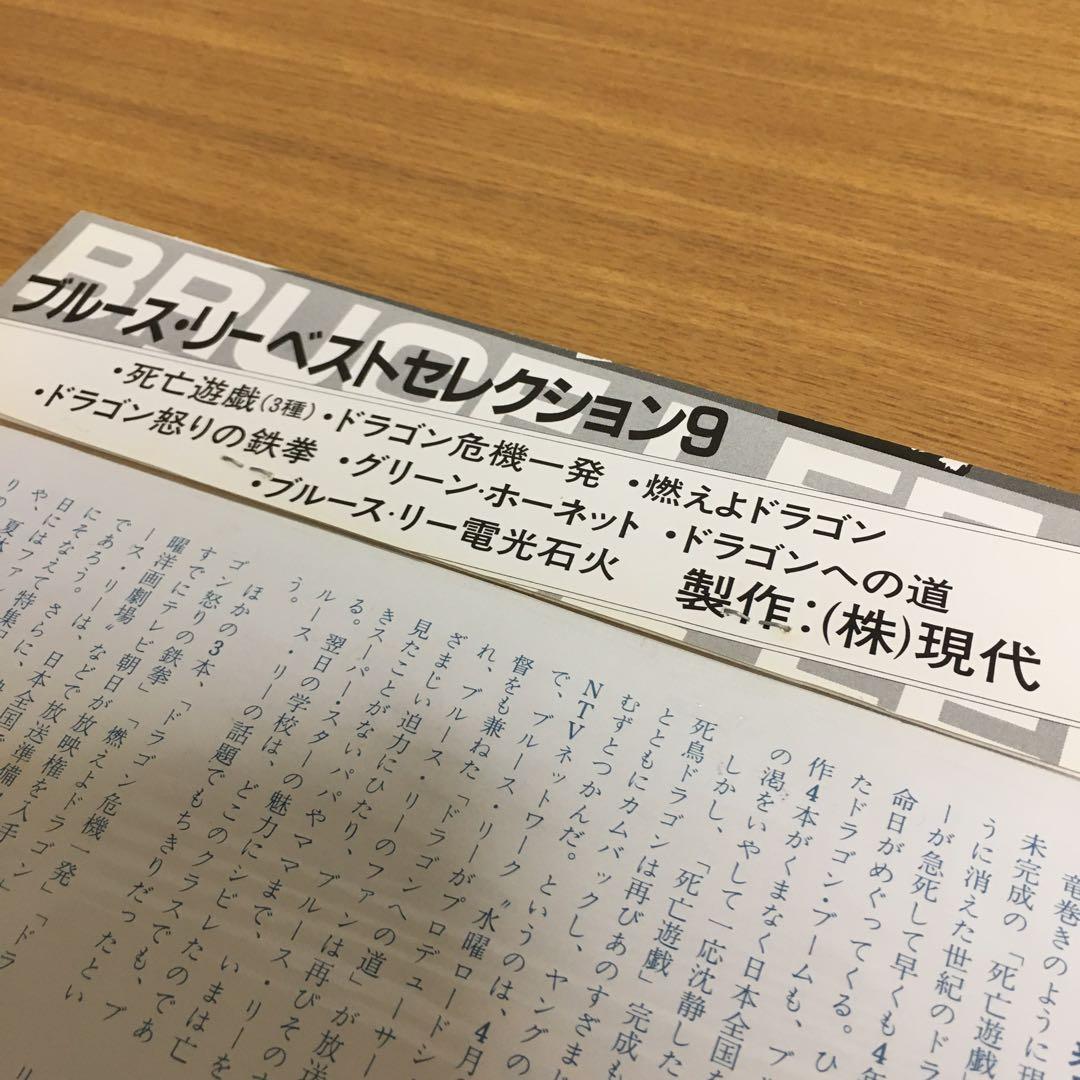 BRUCE LEE
ブルース・リーベストセレクション9
・死亡遊戯(3種)・ドラゴン危機一発 ・燃えよドラゴン
・ドラゴン怒りの鉄拳 ・グリーン・ホーネット ・ドラゴンへの道
・ブルース・リー電光石火 製作:(株)現代
竜巻きのように現
未完成の「死亡遊戯
うに消えた世紀のドラ
ーが急死して早くも4年
命日がめぐってくる。ひ
たドラゴン・ブームも、ブ
作4本がくまなく日本全国を
の渇をいやして一応沈静した
しかし、「死亡遊戯」完成も
死鳥ドラゴンは再びあのすさまじ
とともにカムバックし、ヤングの
むずとつかんだ。というのは、4月
NTVネットワーク〝水曜ロードシ
で、ブルース・リーがプロデューサー
督をも兼ねた「ドラゴンへの道」が放送
れ、ブルース・リーのファンは再びその
ざまじい迫力にひたり、ブルース・リーを
見たことがないパパやママまで、いまは亡
きスーパー・スターの魅力にシビレたのであ
る。翌日の学校は、どこのクラスでも、ブ
ルース・リーの話題でもちきりだったとい
う。
ほかの3本、「ドラゴン危機一発」「ドラ
ゴン怒りの鉄拳」「燃えよドラゴン」
すでにテレビ朝日が放映権を入手
曜洋画劇場〟などで放送準備
ース・リーは、日本全国で
であろう。さらに、
にそなえて特集
日にはファ
や、夏休